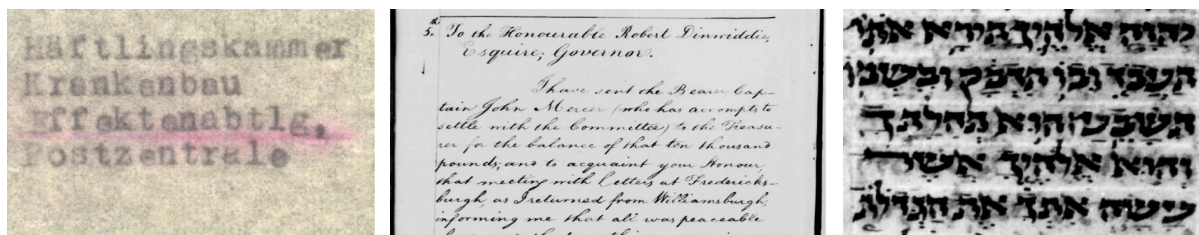 Häftlingskammer
Krankenbau
Effektenabtlg,
Postzentrale
5.th To the Honourable Robert Dinwiddie,
Esquire; Governor.
I have sent the Bearer Cap-
tain John Mercer (who has accompts to
settle with the Committee) to the Treasu-
rer for the balance of that ten thousand
pounds; and to acquaint your Honour,
that meeting with Letters at Fredericks-
burgh, as I returned from Williamsburgh,
informing me that all was peaceable
יהוה אלהיך תירא אתו
תעבד ובו תדבק ובשמו
תשבע הוא תהלתך
והוא אלהיך אשר
עשה אתך את הגדלת